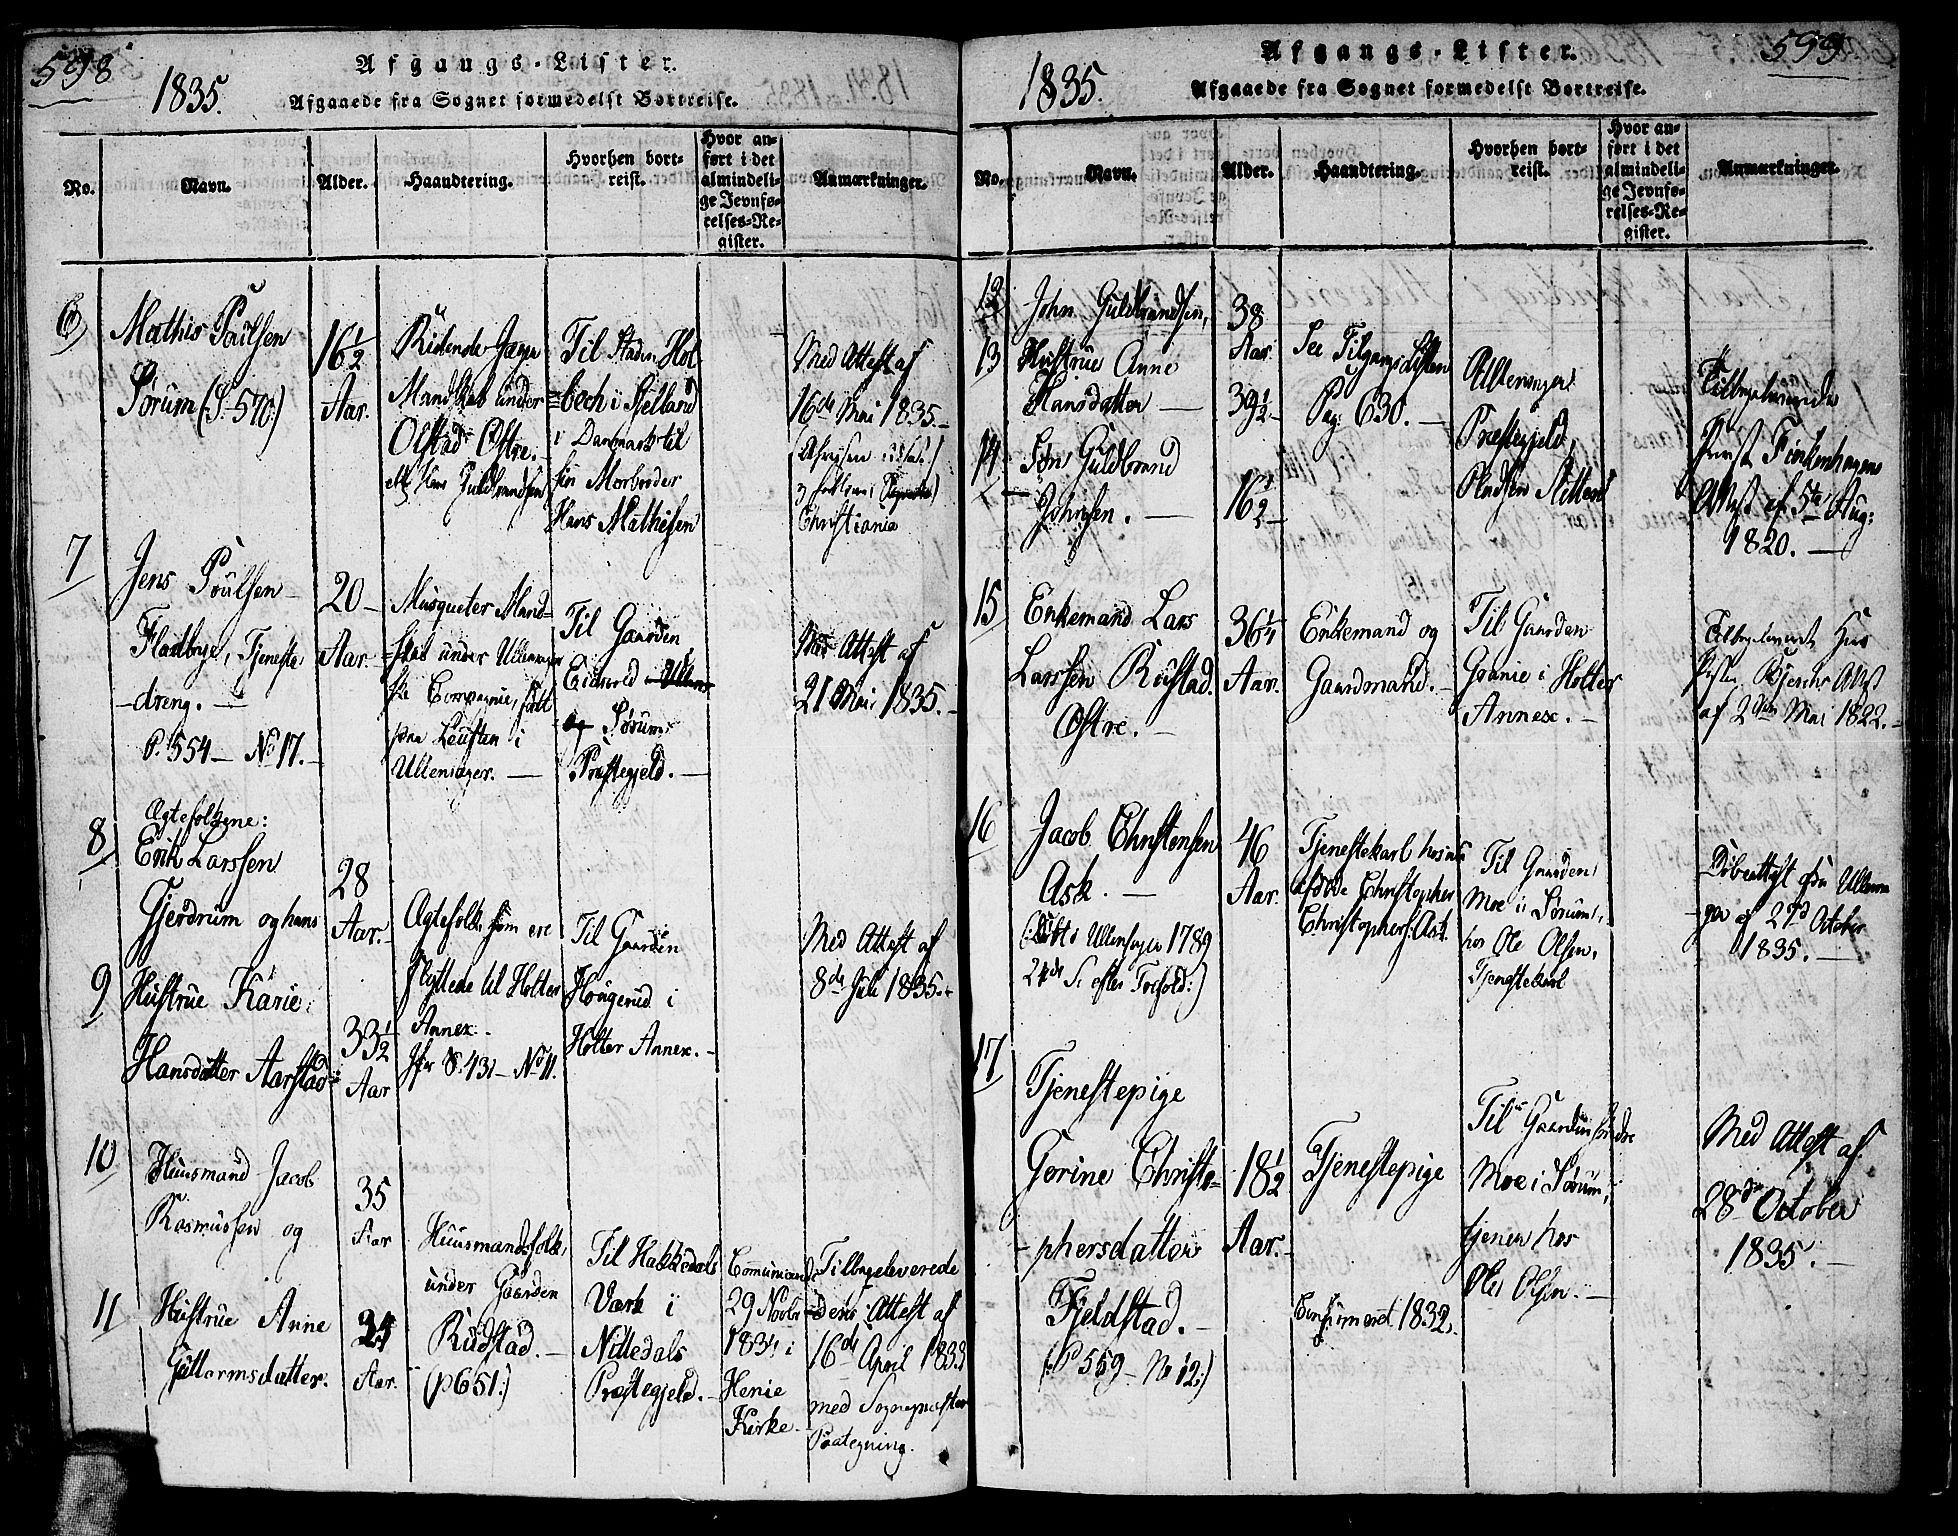 598
1835.
Afgangs-Lister.
Afgaaede fra Sognet formedelst Bortreise.
No.
Navn.
Alder.
Haandtering.
Hvorhen bort-
reist.
Hvor an-
ført i det
almindeli-
ge Jevnfø-
relses-Re-
gister.
Anmærkninger.
6
Mathis Poulsen
Sørum (S. 570.)
16 1/2
Aar.
Ridende Jæger
Mandskab under
Olstad Østre.
Hans Guldbrandsen
Til Staden Hol
bech i Sjelland
i Danmark til
sin Morbroder
Hans Mathisen
Med Attest af
16de Mai 1835.
Christiania
7
Jens Poulsen
Fladbye, Tjeneste
dreng.
P. 554 - No 17.
20
Aar.
Musqueter Mand-
skab under Ullensager
ske Compagnie, født
paa Leusten i
Ullensager.
Til Gaarden
Eidsvold
Sørums
Præstegjeld.
Med Attest af
21 Mai 1835.
8
Ægtefolkene:
Erik Larssen
Gjerdrum og hans
28
Aar.
9
Hustrue Karie
Hansdatter Aarstad
33 1/2
Aar
Ægtefolk, som ere
flyttede til Holter
Annex.
S. 431 - No 11.
Til Gaarden
Hougerud i
Holter Annex.
Med Attest af
8de Juli 1835.
10
Huusmand Jacob
Rasmussen og
35
Aar
11
Hustrue Anne
Guttormsdatter.
Aar.
Huusmandsfolk
under Gaarden
Rudstad.
(p 651.)
Til Hakkedals
Værk i
Nittedals
Præstegjeld.
29 Novbr
1834 i
Henie
Kirke
Tilbageleverede
deres Attest af
16de April 1833
med Sognepræstens
Paategning.
599
1835.
Afgangs-Lister.
Afgaaede fra Sognet formedelst Bortreise.
No.
Navn.
Alder.
Haandtering.
Hvorhen bort-
reist.
Hvor an-
ført i det
almindeli-
ge Jevnfø-
relses-Re-
gister.
Anmærkninger.
12
John Guldbrandsen,
38
Aar.
13
Hustrue Anne
Hansdatter
39 1/2
14
Søn Guldbrand
Johnsen.
16 1/2
See Tilgangs Listen
Pag. 630.
Ullensager
Præstegjeld
Pladsen
Tilbageleverede
Præst Finkenhagens
Attest af 5te Aug:
1820.
15
Enkemand Lars
Larssen Rustad
Østre.
36 1/4
Aar.
Enkemand og
Gaardmand.
Til Gaarden
Granie i Holter
Annex.
Tilbageleverede Hus
Attest
af 2den Mai 1822.
16
Jacob Christensen
Ask.
(Døbt i Ullensager 1789
24de S. efter Trefold:)
46
Aar.
Tjenestekarl hos
afdøde Christopher
Christophers: Ask.
Til Gaarden
Moe i Sørum,
hos Ole Olsen,
Tjenestekarl
Døbeattest fra Ullensa
ger af 27d October
1835.
17
Tjenestepige
Gorine Christo-
phersdatter
Fjeldstad.
(P 559 - No 12.)
18 1/2
Aar.
Tjenestepige
Confirmeret 1832.
Til Gaarden søndre
Moe i Sørum,
tjener hos
Ole Olsen.
Med Attest af
28de October
1835.